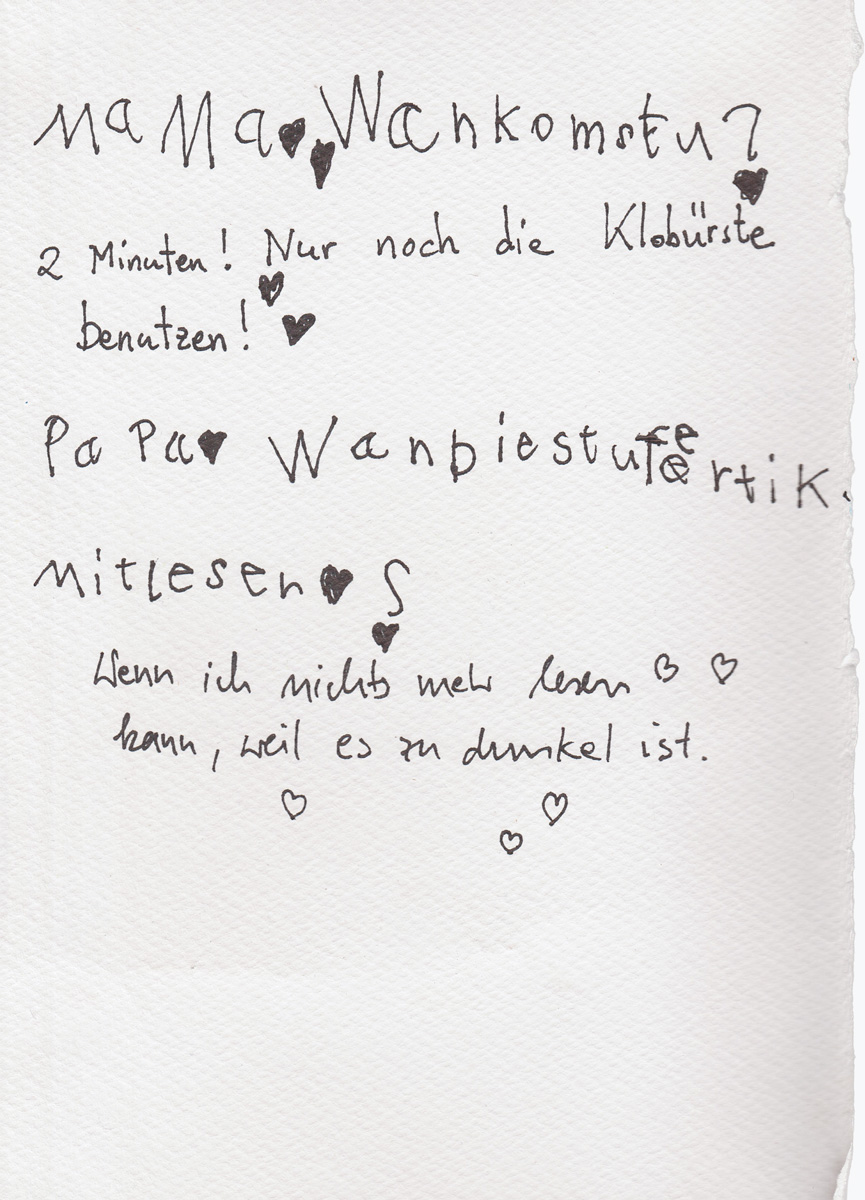 MaMa♥♥Wankomstu?♥
2 Minuten! Nur noch die Klobürste
benutzen! ♥♥
PaPa♥ Wanbiestufertik.
Mitlesen♥?
Wenn ich nichts mehr lesen ♡ ♡
kann, weil es zu dunkel ist.